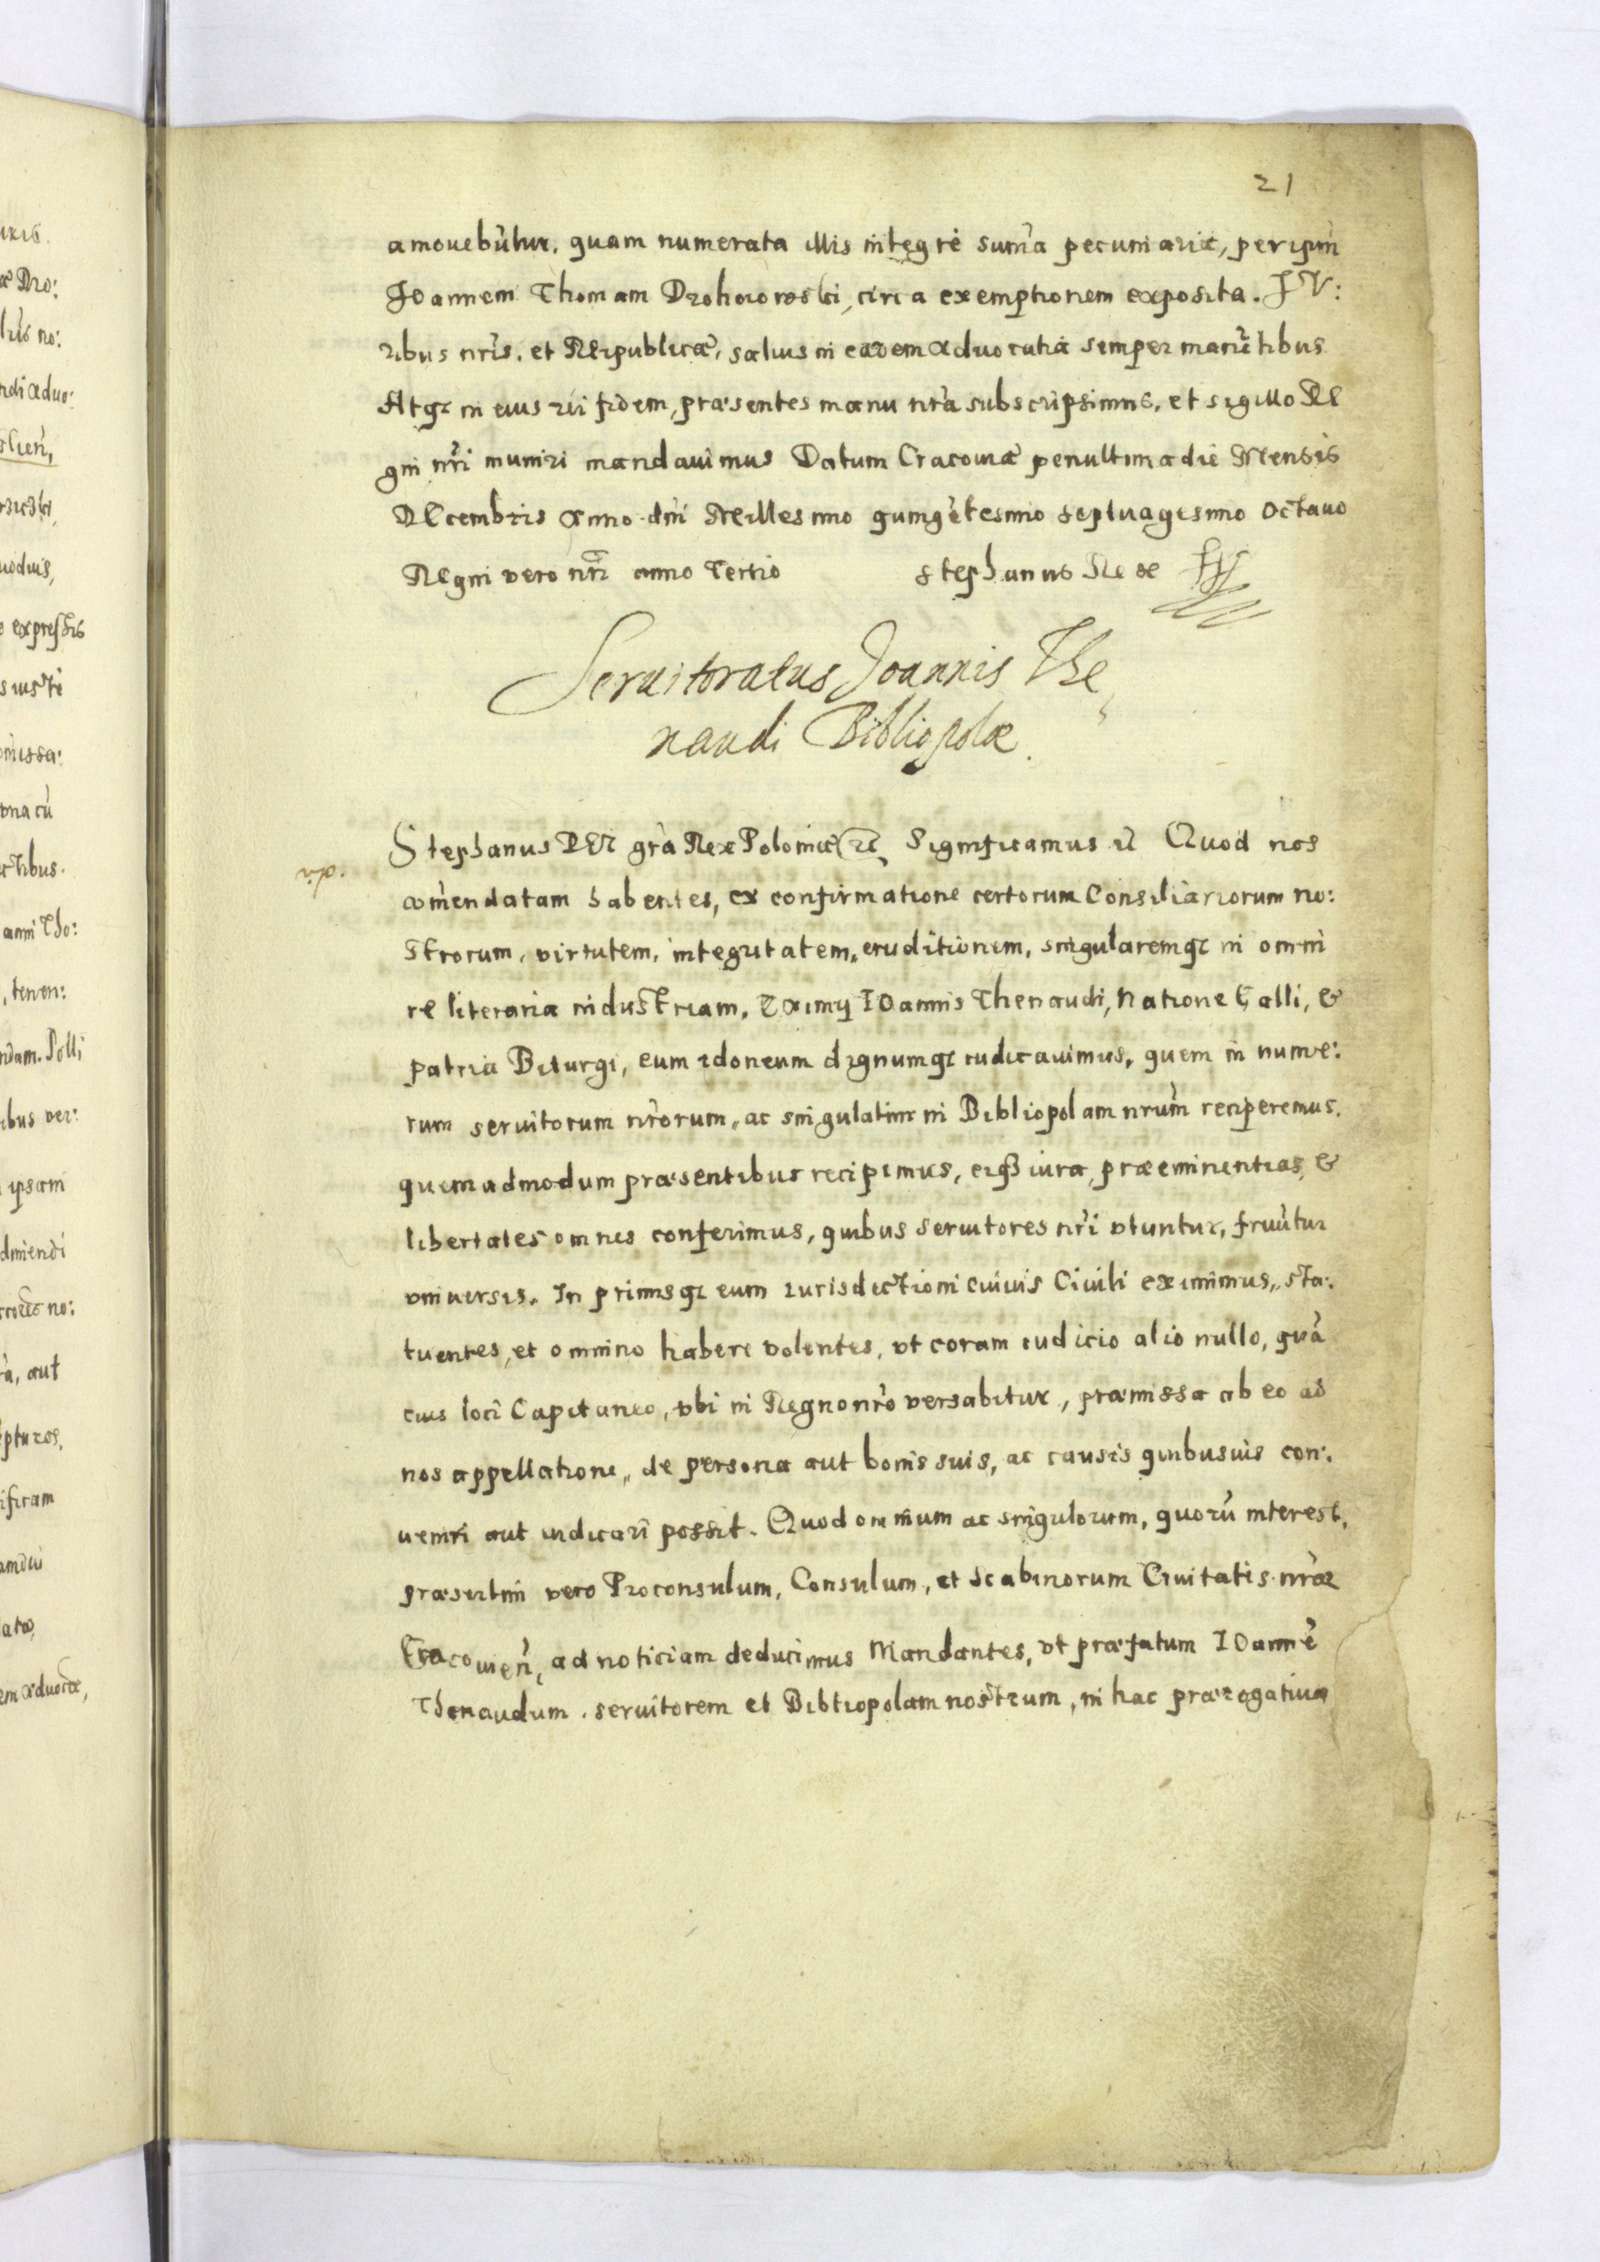 21
amouebũtur, quam numerata illis integrè summa pecuniaria, per ipsm̃
Joannem Thomam Drohoiowski, circa exemptionem exposita. IV:
ribus nr̃is, et Reipublicæ, saluis in eadem aduocatia semper manẽtibus
Atq; in eius rei fidem, præsentes manu nr̃a subscripsimus, et sigillo Re
gni nr̃i muniri mandauimus Datum Cracouiæ penultima die Mensis
Decembris anno dñi Millesimo quingẽtesimo septuagesimo octauo
Regni vero nr̃i anno Tertio Stephanus Rex
Seruitoratus Joannis The
naudi Bibliopolæ.
Stephanus Dei grã Rex Poloniæ etc Significamus etc Quod nos
com̃endatam habentes, ex confirmatione certorum Consiliariorum no:
strorum, virtutem, integritatem, eruditionem, singularemq; in omni
re literaria industriam, Eximij Ioannis Thenaudi, Natione Galli, &
patria Biturgi, eum idoneum dignumq; iudicauimus, quem in nume:
rum seruitorum nr̃orum, ac singulatim in Bibliopolam nrũm reciperemus.
quemadmodum præsentibus recipimus, eiq; iura, præeminentias, &
libertates omnes conferimus, quibus seruitores nr̃i vtuntur, fruũtur
vniuersis. In primisq; eum iurisdictioni cuiuis Ciuili eximimus, sta:
tuentes, et omnino habere volentes, vt coram iudicio alio nullo, quã
eius loci Capitaneo, vbi in Regno nr̃o versabitur, præmissa ab eo ad
nos appellatione, de persona aut bonis suis, ac causis quibusuis con:
ueniri aut iudicari possit. Quod omnium ac singulorum, quorũ interest,
præsertim vero Proconsulum, Consulum, et Scabinorum Ciuitatis nr̃æ
Cracouien̄, ad noticiam deducimus Mandantes, vt præfatum Ioannẽ
Thenaudum seruitorem et Bibliopolam nostrum, in hac prærogatiua